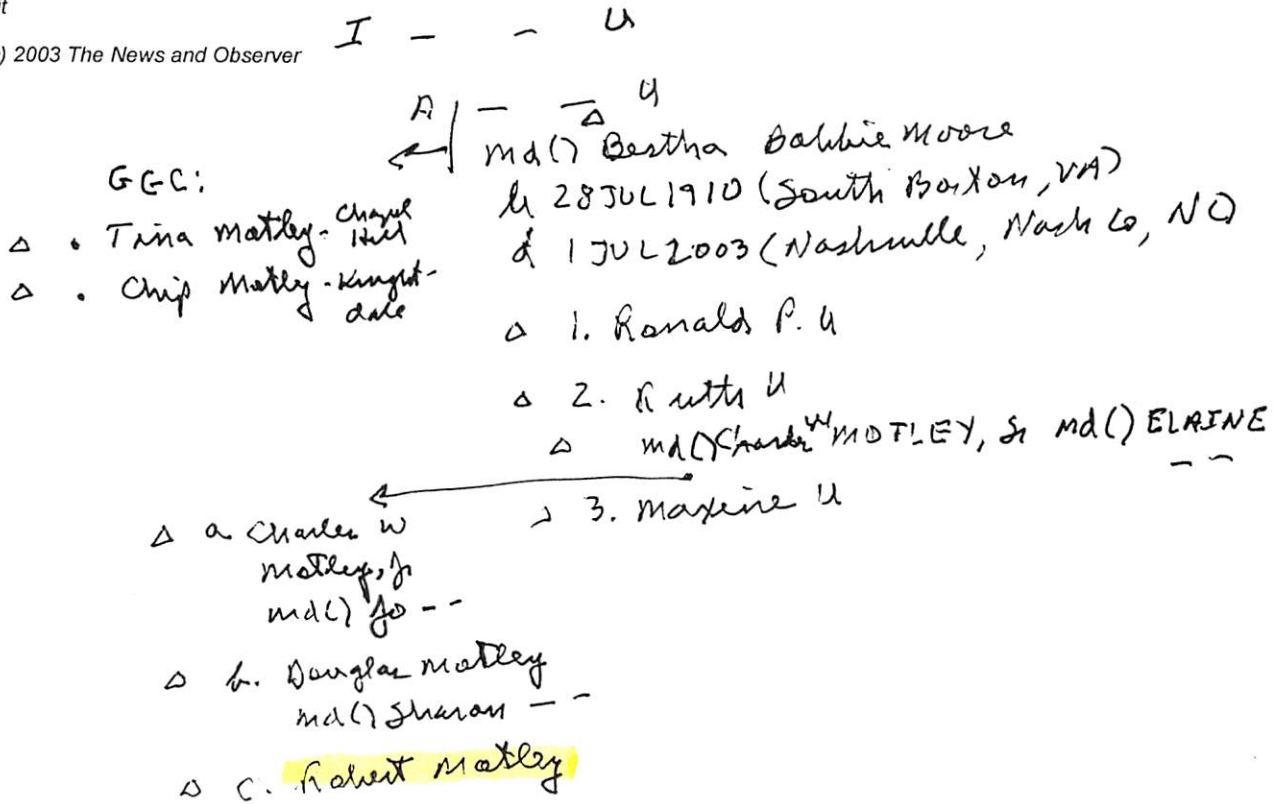 t
) 2003 The News and Observer
I - - U
A - - U
md() Bertha Dabbie Moore
b 28 JUL 1910 (South Boston, VA)
d 1 JUL 2003 (Nashville, Nash Co, NC)
GGC:
Δ • Tina Motley - Chapel Hill
Δ • Chip Motley - Knight-
dale
Δ 1. Ronald P. U
Δ 2. Ruth U
Δ md() Charles W MOTLEY, Sr md() ELAINE
- -
3. Maxine U
Δ a. Charles W
Motley, Jr
md() Jo - -
Δ b. Douglas Motley
md() Sharon - -
Δ c. Robert Motley